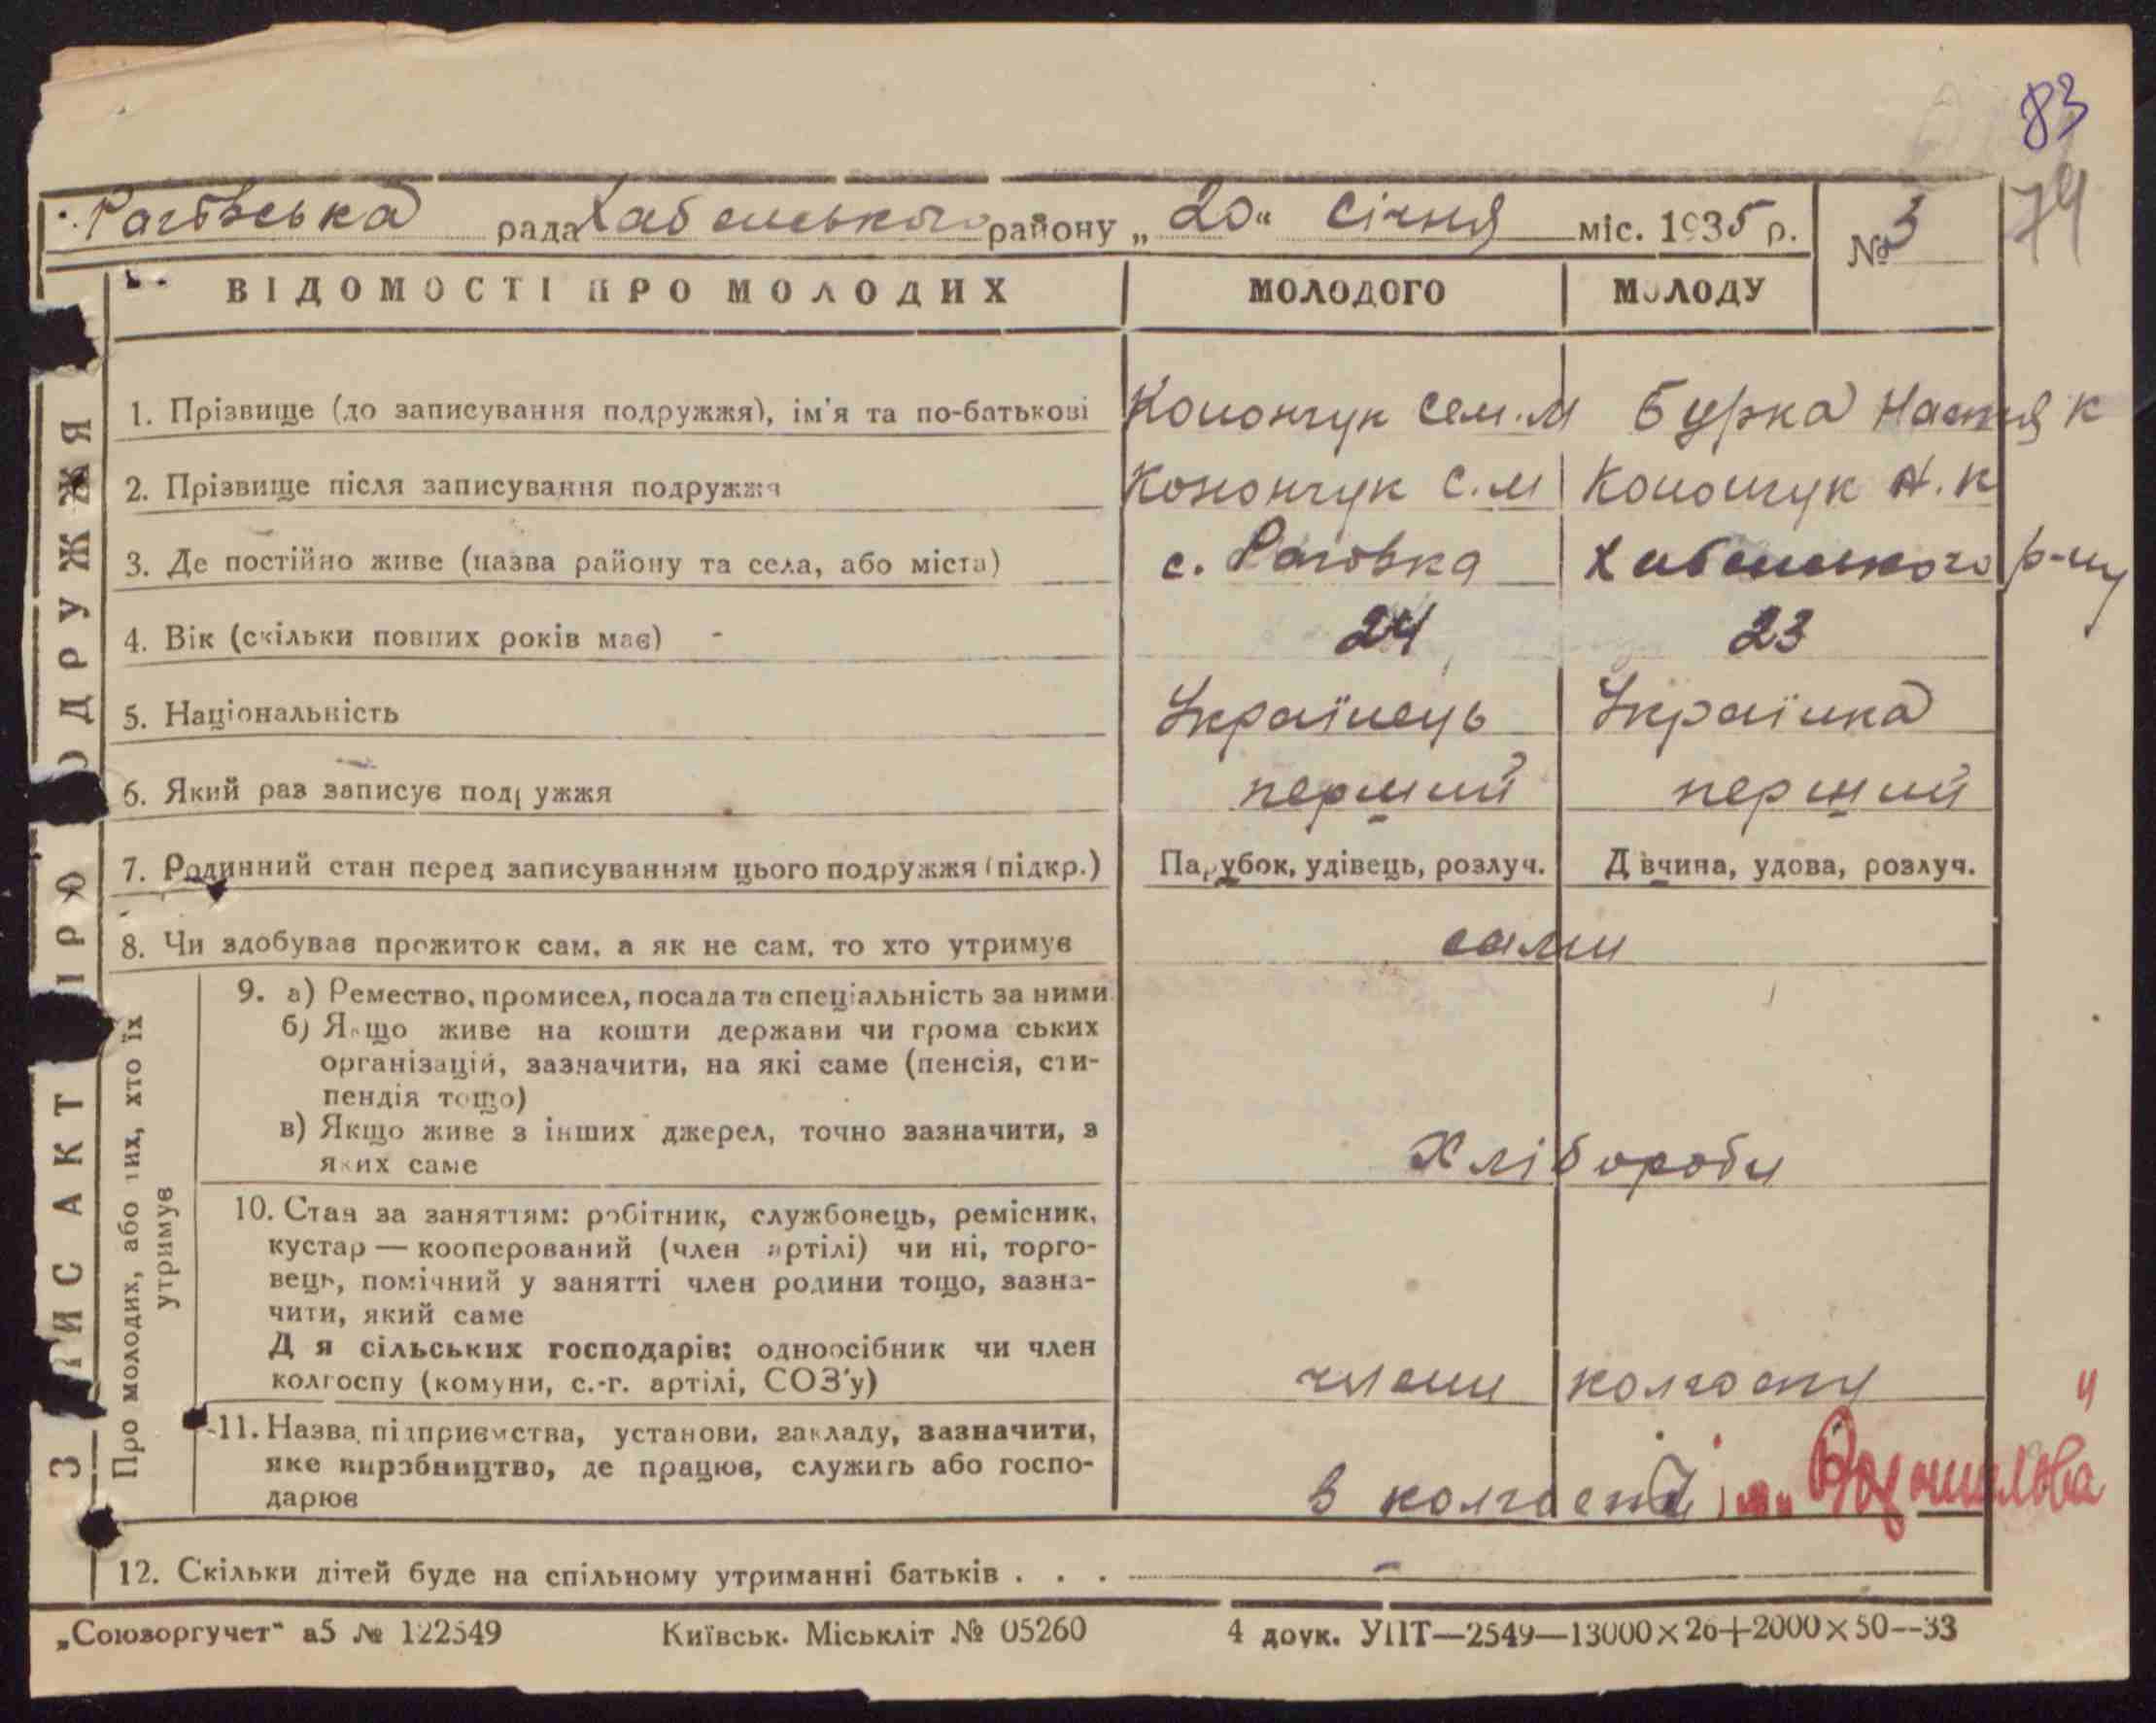 83
Раговська рада Хабенського району „ 20 “ Січня міс. 1935 р. № 3
74
ВІДОМОСТІ ПРО МОЛОДИХ МОЛОДОГО МОЛОДУ
ЗАПИС АКТ ПРО ПОДРУЖЖЯ
1. Прізвище (до записування подружжя), ім'я та по-батькові Конончук Сем. М Бурка Настя К
2. Прізвище після записування подружжя Конончук С. М Конончук Н. К
3. Де постійно живе (назва району та села, або міста) с. Раговка Хабенського р-ну
4. Вік (скільки повних років має) - 24 23
5. Національність Українець Українка
6. Який раз записує подружжя перший перший
7. Родинний стан перед записуванням цього подружжя (підкр.) Парубок, удівець, розлуч. Дівчина, удова, розлуч.
8. Чи здобував прожиток сам, а як не сам, то хто утримує сами
Про молодих, або тих, хто їх
утримує
9. а) Ремество, промисел, посада та спеціальність за ними
б) Якщо живе на кошти держави чи громадських
організацій, зазначити, на які саме (пенсія, сти-
пендія тощо)
в) Якщо живе з інших джерел, точно зазначити, з
яких саме Хлібороби
10. Стан за заняттям: робітник, службовець, ремісник,
кустар — кооперований (член артілі) чи ні, торго-
вець, помічний у занятті член родини тощо, зазна-
чити, який саме
Для сільських господарів: одноосібник чи член
колгоспу (комуни, с.-г. артілі, СОЗ'у) члени колгоспу
11. Назва підприємства, установи, закладу, зазначити,
яке виробництво, де працює, служить або госпо-
дарює в колгоспі ім. Ворошилова “
12. Скільки дітей буде на спільному утриманні батьків . . . -
„Союзоргучет“ а5 № 122549 Київськ. Міськліт № 05260 4 друк. УПТ—2549—13000×26+2000×50--33